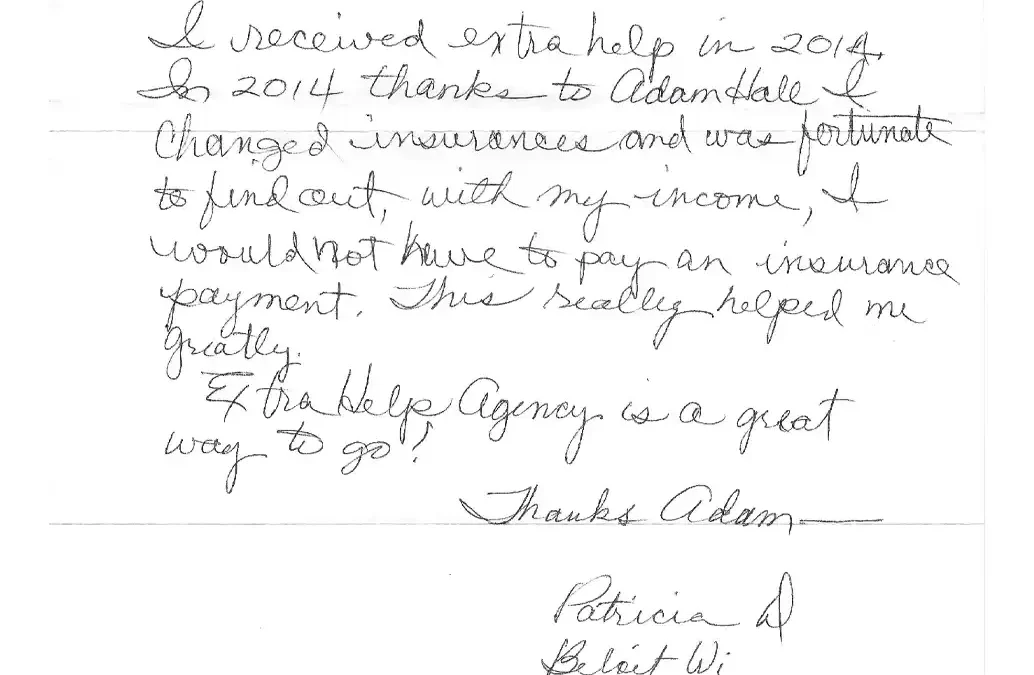 I received extra help in 2014.
In 2014 thanks to Adam Hale I
changed insurances and was fortunate
to find out, with my income, I
would not have to pay an insurance
payment. This really helped me
greatly.
Extra Help Agency is a great
way to go!
Thanks Adam
Patricia D
Beloit Wi